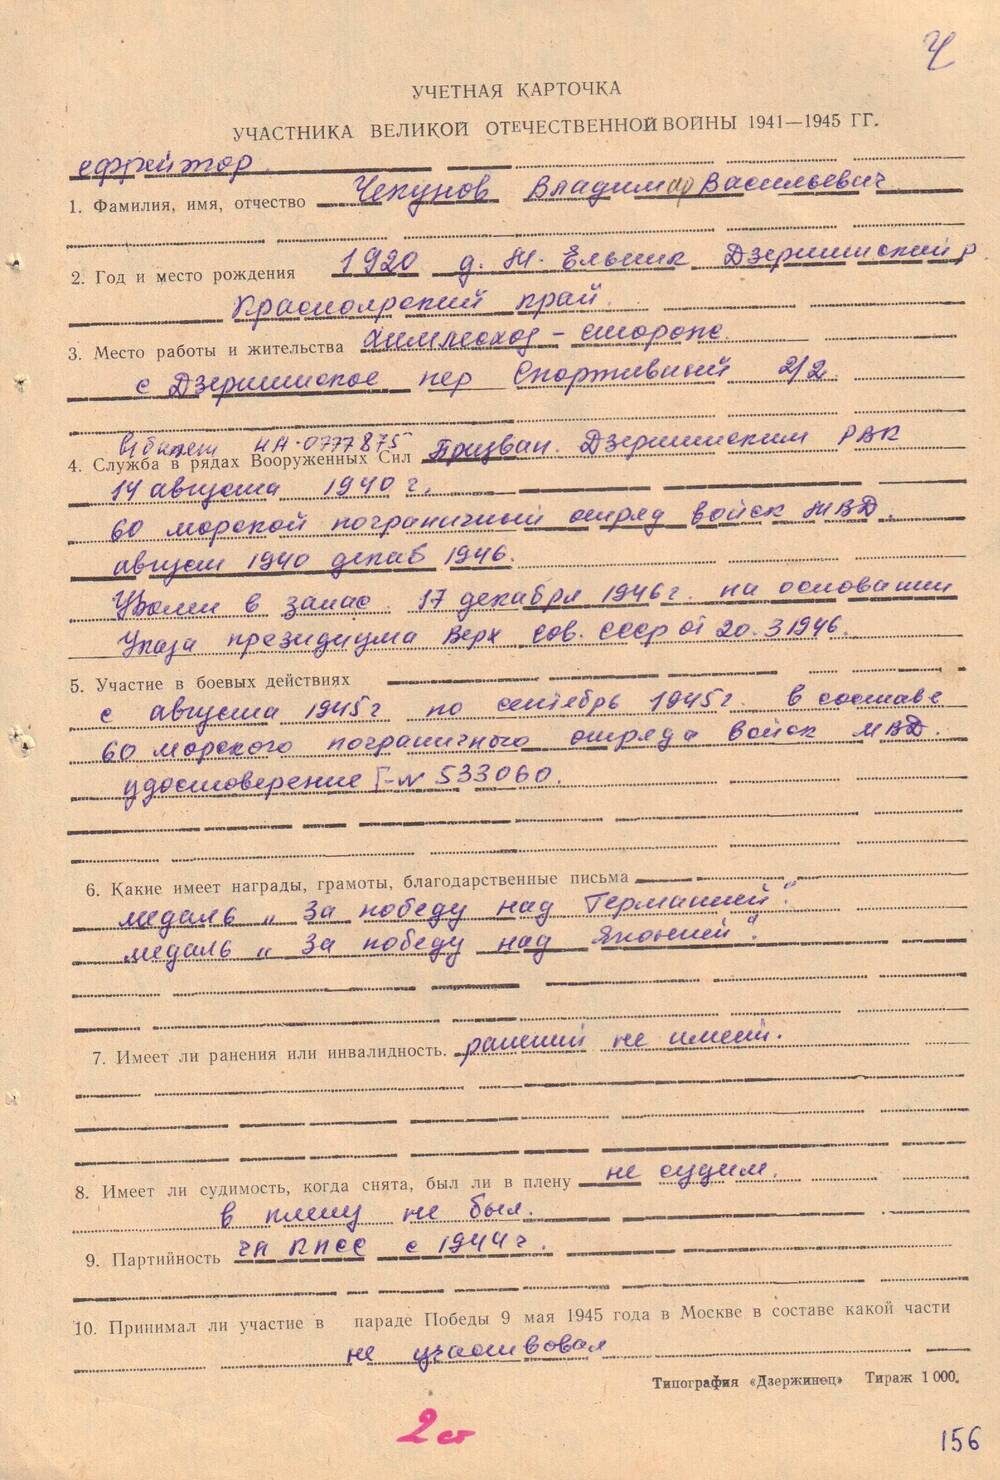 Ч
УЧЕТНАЯ КАРТОЧКА
УЧАСТНИКА ВЕЛИКОЙ ОТЕЧЕСТВЕННОЙ ВОЙНЫ 1941—1945 ГГ.
ефрейтор
1. Фамилия, имя, отчество Чекунов Владимир Васильевич
2. Год и место рождения 1920 д. М. Ельник Дзержинский р
Красноярский край.
3. Место работы и жительства Химлесхоз – сторож.
с Дзержинское пер Спортивный 2/2
в/билет НА-0777875
4. Служба в рядах Вооруженных Сил Призван. Дзержинским РВК
14 августа 1940 г.
60 морской пограничный отряд войск МВД.
август 1940 декаб 1946.
Уволен в запас. 17 декабря 1946 г. на основании
Указа президиума Верх Сов. СССР от 20.3 1946.
5. Участие в боевых действиях
с августа 1945 г по сентябрь 1945 г. в составе
60 морского пограничного отряда войск МВД.
удостоверение Г-№ 533060.
6. Какие имеет награды, грамоты, благодарственные письма
медаль „За победу над Германией".
медаль „За победу над Японией".
7. Имеет ли ранения или инвалидность. ранений не имеет.
8. Имеет ли судимость, когда снята, был ли в плену не судим.
в плену не был.
9. Партийность чл КПСС с 1944 г.
10. Принимал ли участие в параде Победы 9 мая 1945 года в Москве в составе какой части
не участвовал
Типография «Дзержинец» Тираж 1 000.
2 ст
156